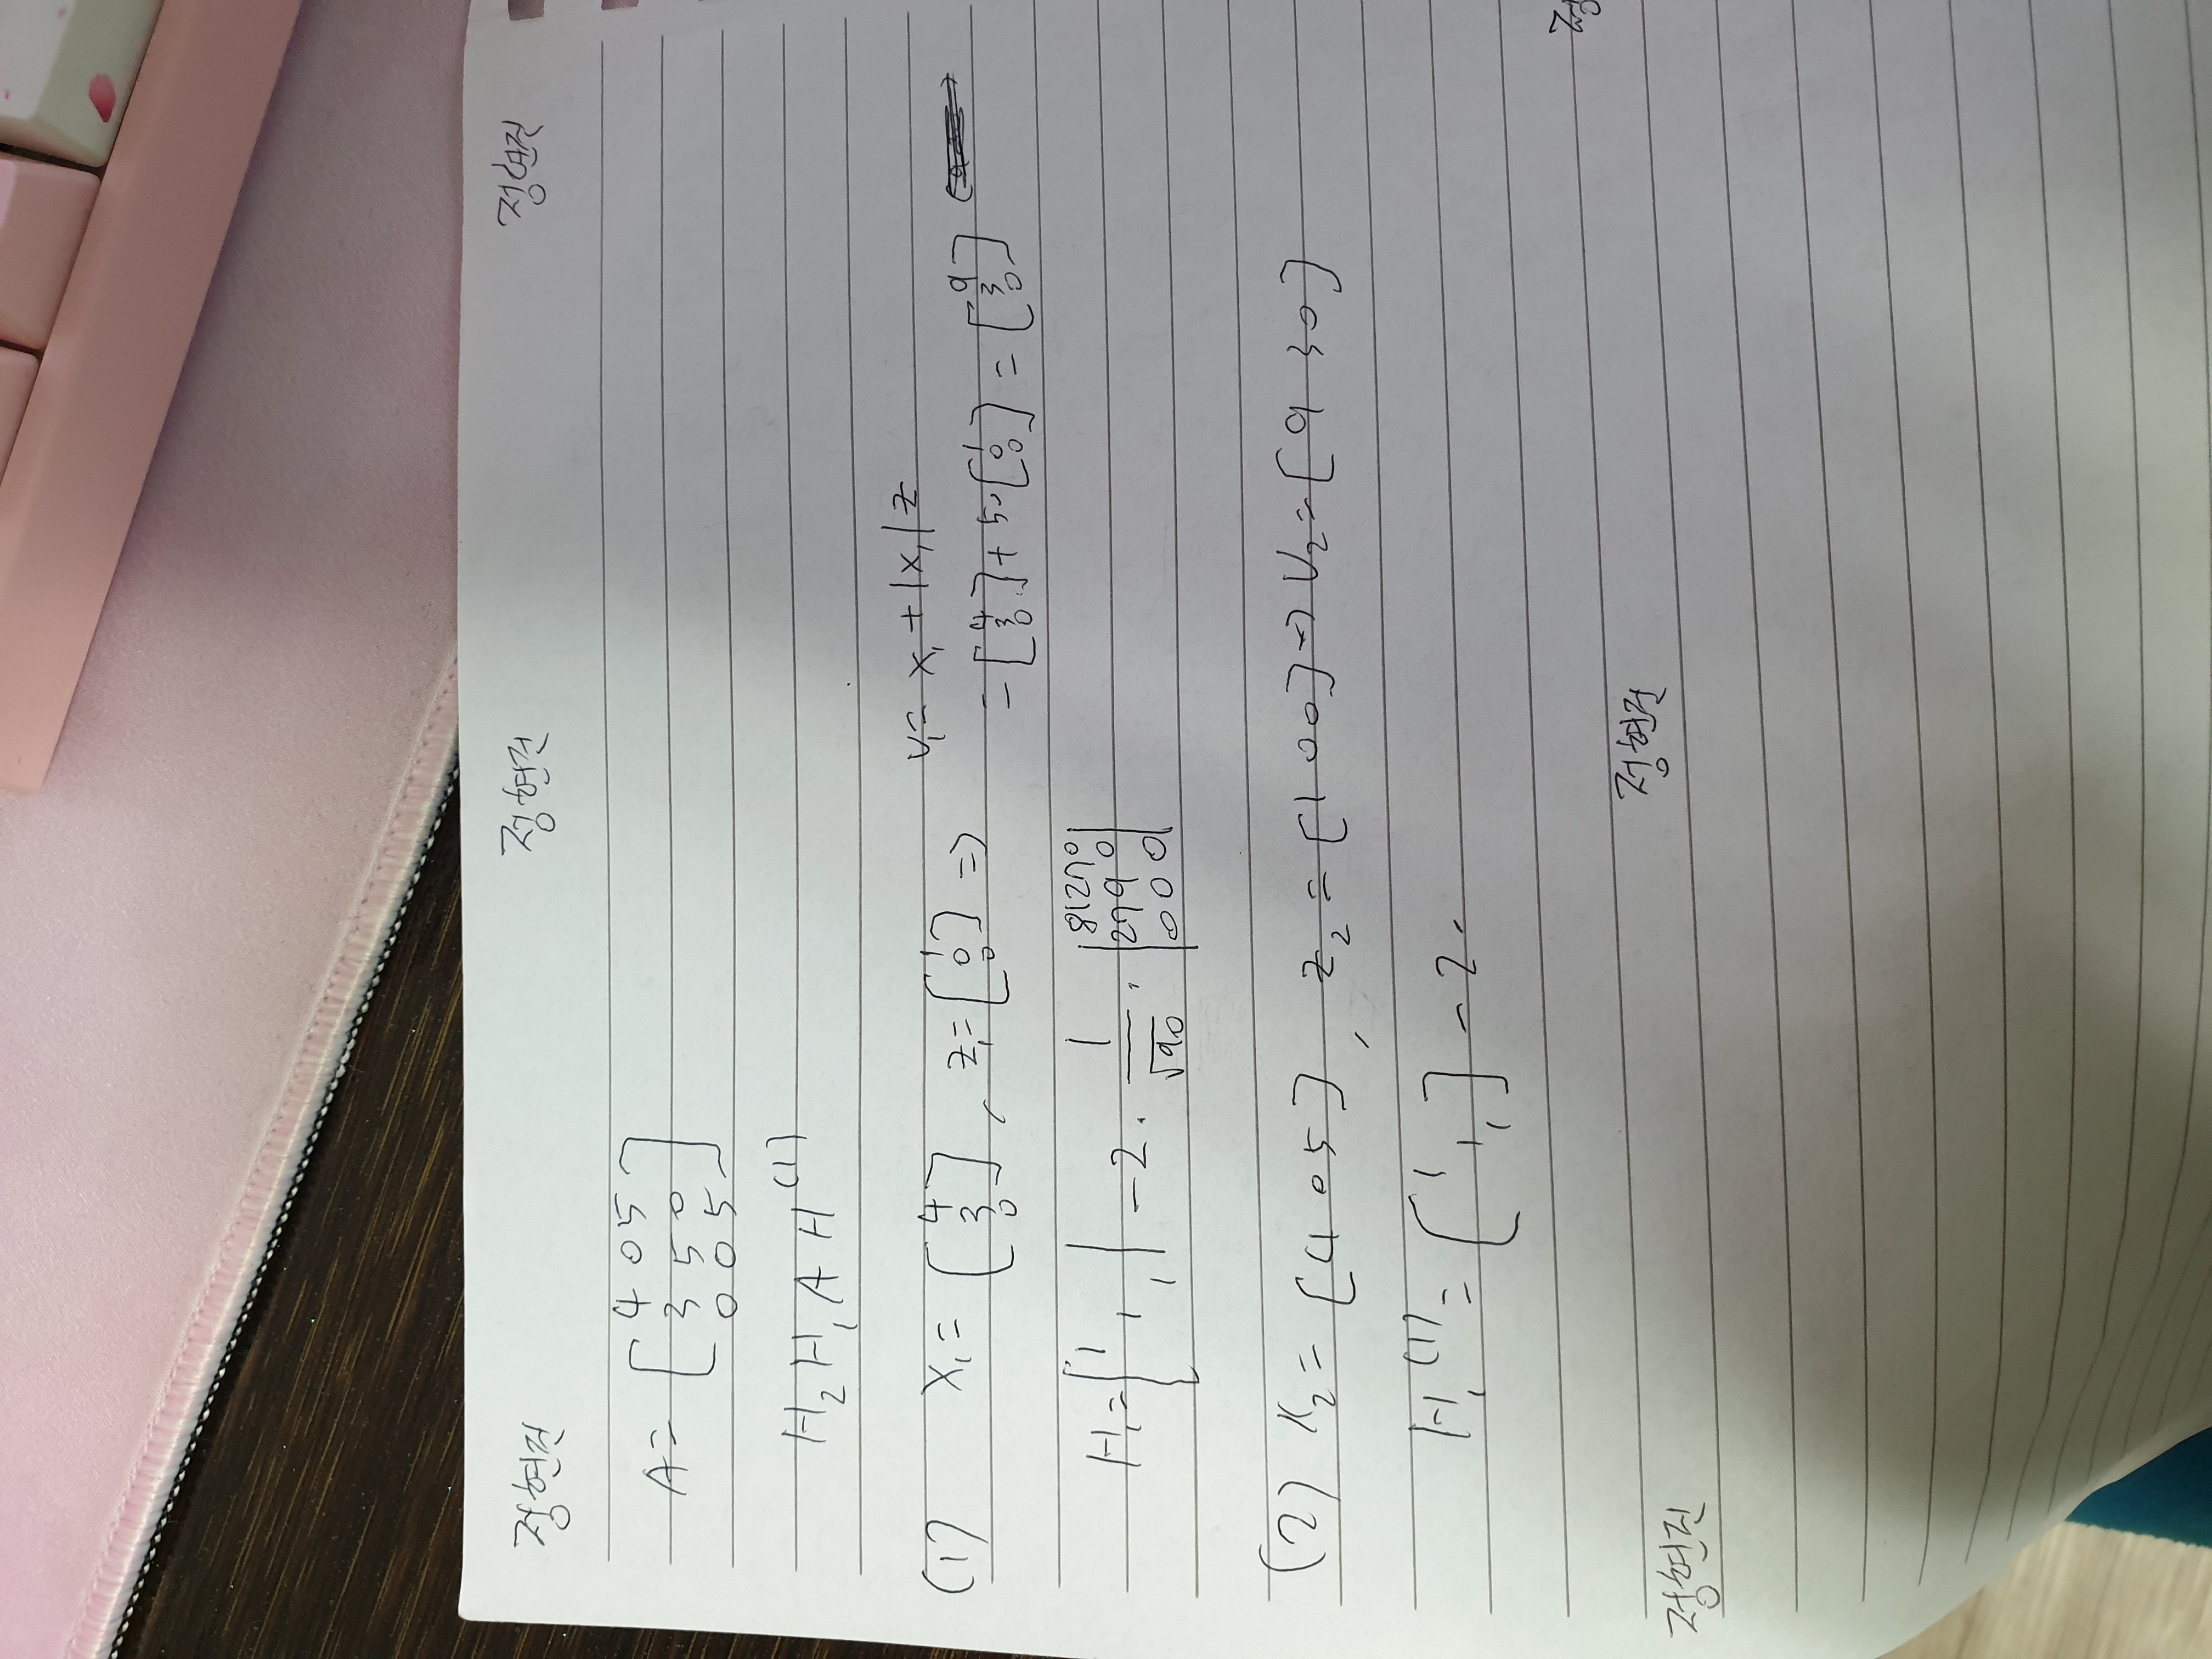 정현진 정현진 정현진
A = [4 0 5
3 5 0
0 0 5]
H₂ H₁ A H⁽¹⁾
(1) x₁ = [4 3 0], z₁ = [1 0 0] ⇒ v₁ = x₁ + |x₁| z
= [4 3 0] + 5· [1 0 0] = [9 3 0]
H₁ = [1 1 1] - 2 · 1/√90 · |81 27 0
27 9 0
0 0 0|
(2) x₂ = [4 0 5], z₂ = [1 0 0] → v₂ = [9 3 0]
H₁⁽¹⁾ = [1 1 1] - 2 ·
정
정현진
정현진